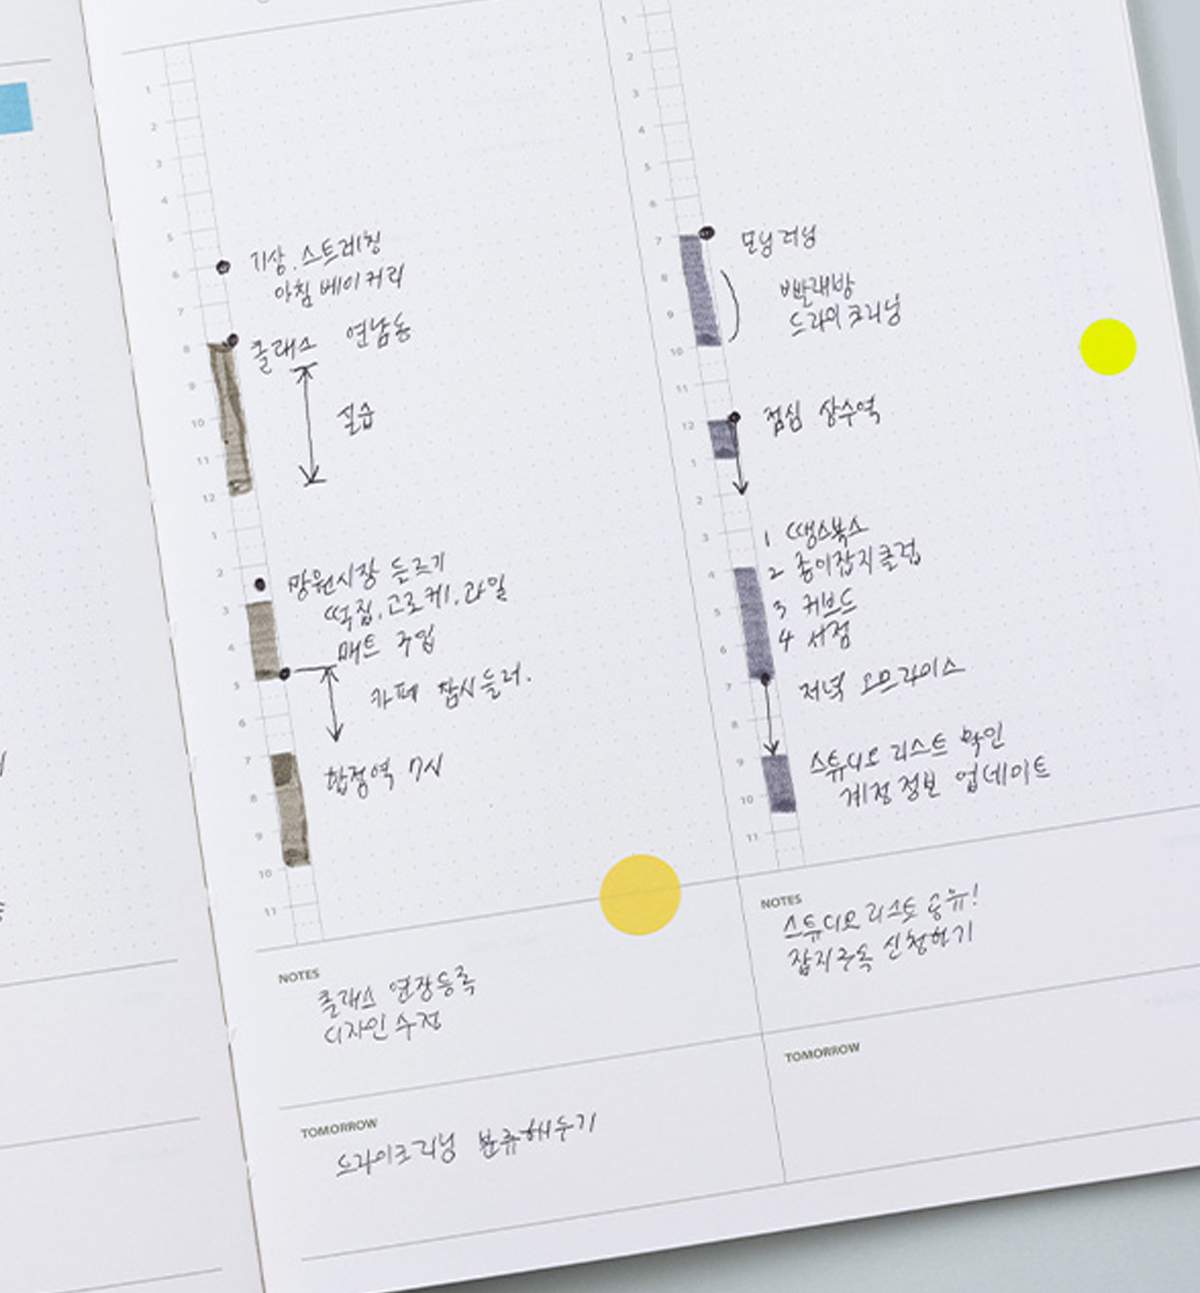 1
2
3
4
5
6
7
8
9
10
11
12
1
2
3
4
5
6
7
8
9
10
11
기상. 스트레칭
아침 베이커리
클래스 연남동
실습
망원시장 들르기
떡집. 고로케. 과일
매트 구입
카페 잠시들러.
합정역 7시
NOTES
클래스 연장등록
디자인 수정
TOMORROW
드라이크리닝 분류해두기
1
2
3
4
5
6
7
8
9
10
11
12
1
2
3
4
5
6
7
8
9
10
11
모닝러닝
빨래방
드라이크리닝
점심 상수역
1 땡스북스
2 종이잡지클럽
3 커브드
4 서점
저녁 오므라이스
스튜디오 리스트 확인
계정정보 업데이트
NOTES
스튜디오 리스트 공유!
잡지구독 신청하기
TOMORROW